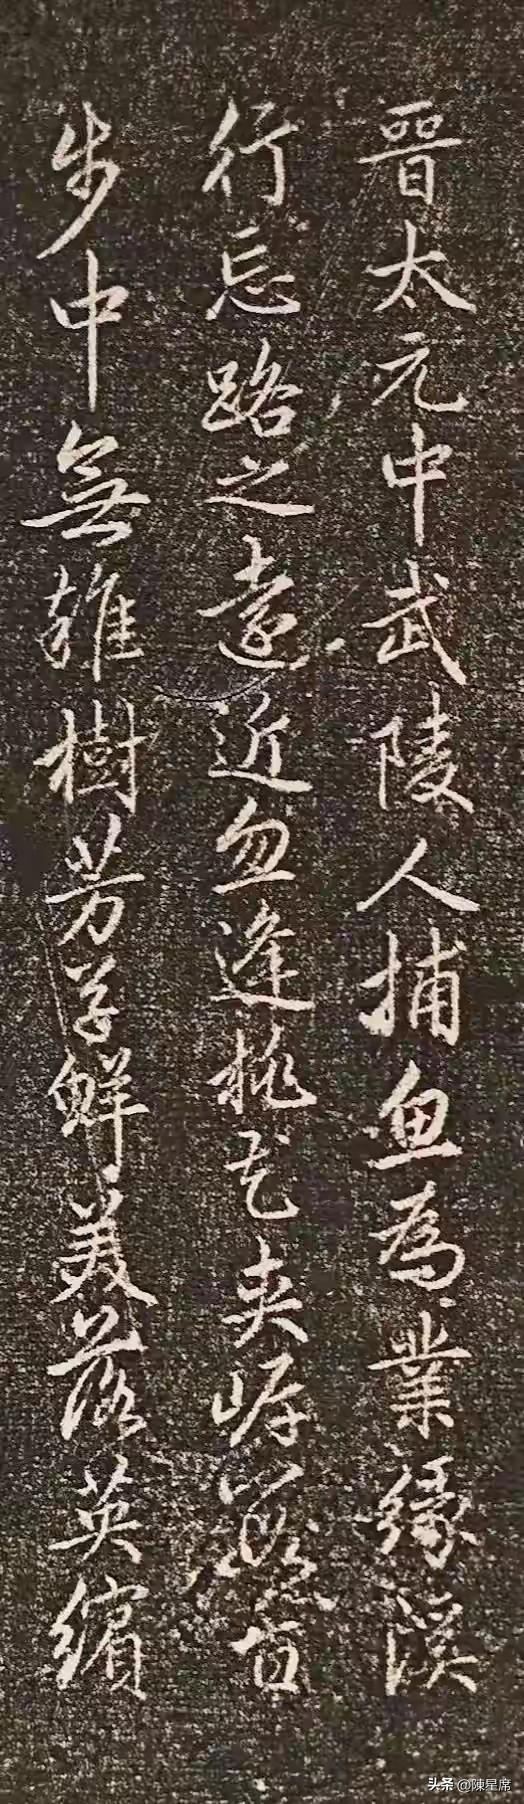 晉太元中武陵人捕魚為業緣溪
行忘路之遠近忽逢桃花夾岸數百
步中無雜樹芳草鮮美落英繽
头条 @陳星席